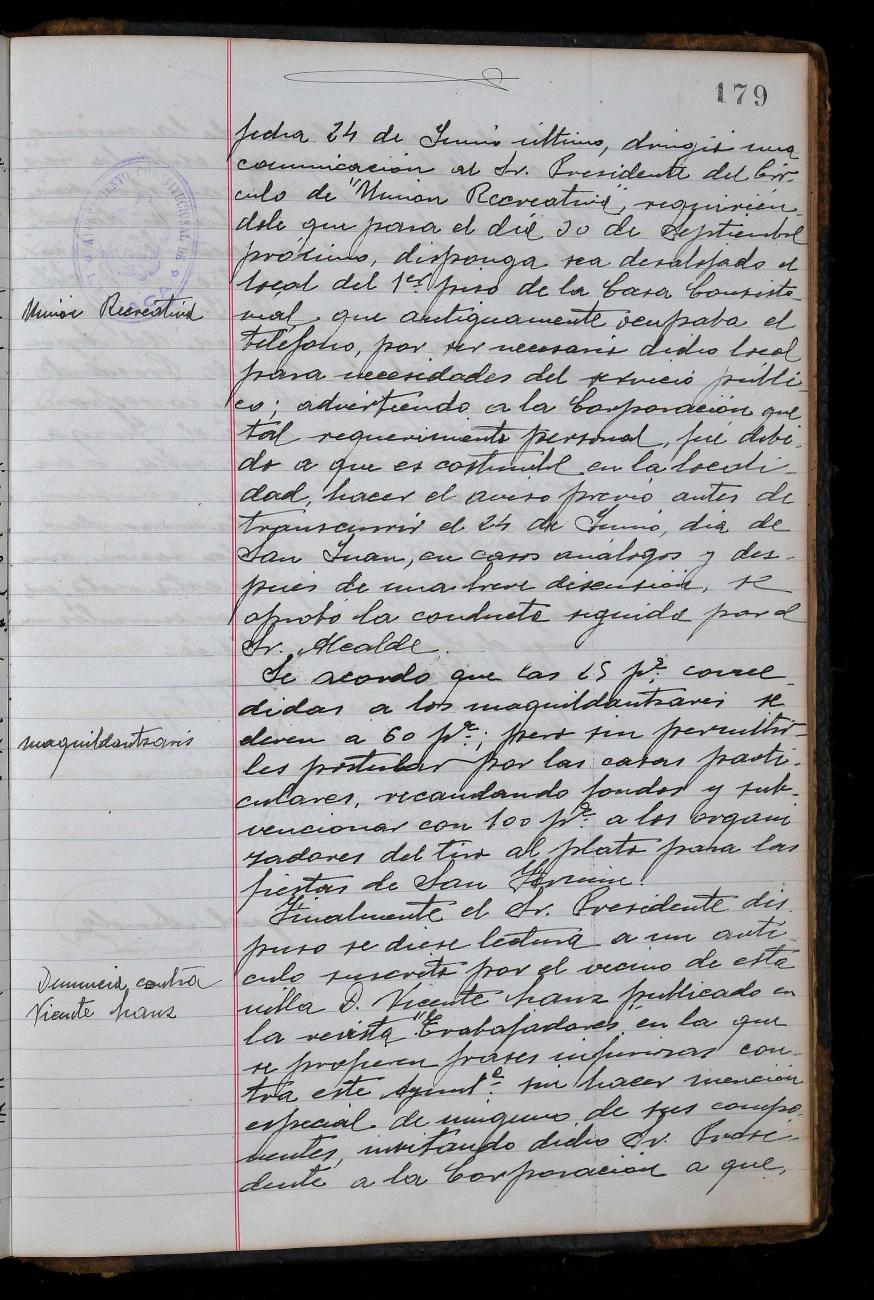 179
fecha 24 de Junio último, dirigió una
comunicación al Sr. Presidente del Cír-
culo de "Unión Recreativa", requirién-
dole que para el día 30 de Septiembre
próximo, disponga sea desalojado el
local del 1er piso de la Casa Consisto-
rial que antiguamente ocupaba el
teléfono, por ser necesario dicho local
para necesidades del servicio públi-
co; advertiendo a la Corporación que
tal requerimiento personal, fué debi-
do a que es costumbre en la locali-
dad, hacer el aviso previo antes de
transcurrir el 24 de Junio, día de
San Juan, en casos análogos y des-
pués de una breve discusión, se
aprobó la conducta seguida por el
Sr. Alcalde.
Se acordó que las 25 pts. conce-
didas a los maquildantzaris se
eleven a 60 pts.; pero sin permitir-
les postular por las casas parti-
culares, recaudando fondos y sub-
vencionar con 100 pts. a los organi
zadores del tiro al plato para las
fiestas de San Fermín.
Finalmente el Sr. Presidente dis
puso se diese lectura a un artí-
culo suscrito por el vecino de esta
villa D. Vicente Sanz publicado en
la revista "Trabajadores" en la que
se profieren frases injuriosas con-
tra este Ayuntº. sin hacer mención
especial de ninguno de sus compo-
nentes, invitando dicho Sr. Presi-
dente a la Corporación a que,
Unión Recreativa
maquildantzaris
Denuncia contra
Vicente Sanz
AYUNTAMIENTO CONSTITUCIONAL DE